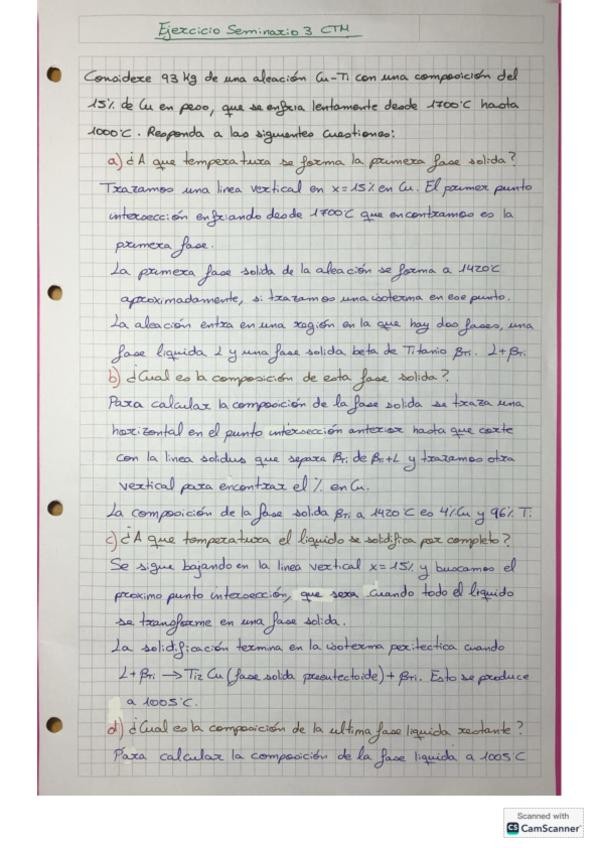 Ejercicio Seminario 3 CTM
Considere 93 Kg de una aleación Cu-Ti con una composición del
15% de Cu en peso, que se enfria lentamente desde 1700°C hasta
1000°C. Responda a las siguientes cuestiones:
a) ¿A que temperatura se forma la primera fase solida?
Trazamos una linea vertical en x=15% en Cu. El primer punto
intersección enfriando desde 1700°C que encontramos es la
primera fase.
La primera fase solida de la aleación se forma a 1420°C
aproximadamente, si trazamos una isoterma en ese punto.
La aleación entra en una región en la que hay dos fases, una
fase liquida L y una fase solida beta de Titanio βTi. L+βTi.
b) ¿Cual es la composición de esta fase solida?
Para calcular la composición de la fase solida se traza una
horizontal en el punto intersección anterior hasta que corte
con la linea solidus que separa βTi de βTi+L y trazamos otra
vertical para encontrar el % en Cu.
La composición de la fase solida βTi a 1420°C es 4%Cu y 96% T.
c) ¿A que temperatura el liquido se solidifica por completo?
Se sigue bajando en la linea vertical x=15% y buscamos el
proximo punto intersección, que sera cuando todo el liquido
se transforme en una fase solida.
La solidificación termina en la isoterma peritectica cuando
L+βTi → Ti2 Cu (fase solida proeutectoide) + βTi. Esto se produce
a 1005°C.
d) ¿Cual es la composición de la ultima fase liquida restante?
Para calcular la composición de la fase liquida a 1005°C
Scanned with
CS CamScanner